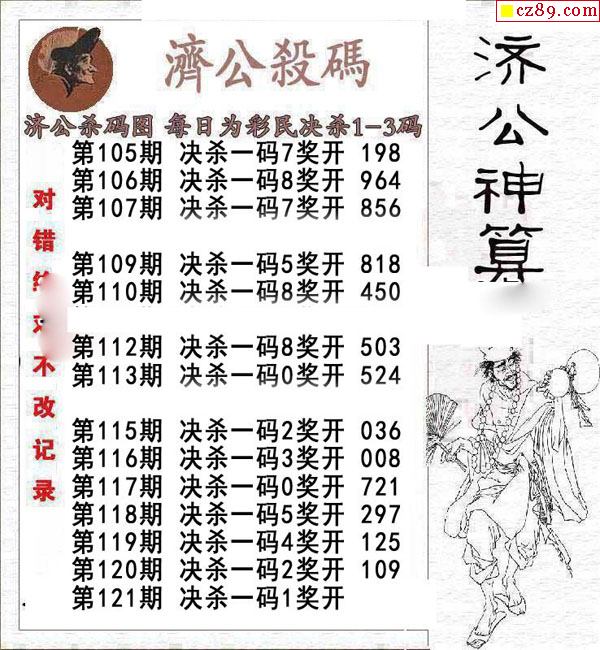 cz89.com
濟公殺碼
济公杀码图 每日为彩民决杀1-3码
第105期 决杀一码7奖开 198
第106期 决杀一码8奖开 964
第107期 决杀一码7奖开 856
第109期 决杀一码5奖开 818
第110期 决杀一码8奖开 450
第112期 决杀一码8奖开 503
第113期 决杀一码0奖开 524
第115期 决杀一码2奖开 036
第116期 决杀一码3奖开 008
第117期 决杀一码0奖开 721
第118期 决杀一码5奖开 297
第119期 决杀一码4奖开 125
第120期 决杀一码2奖开 109
第121期 决杀一码1奖开
对错
不改记录
济公神算